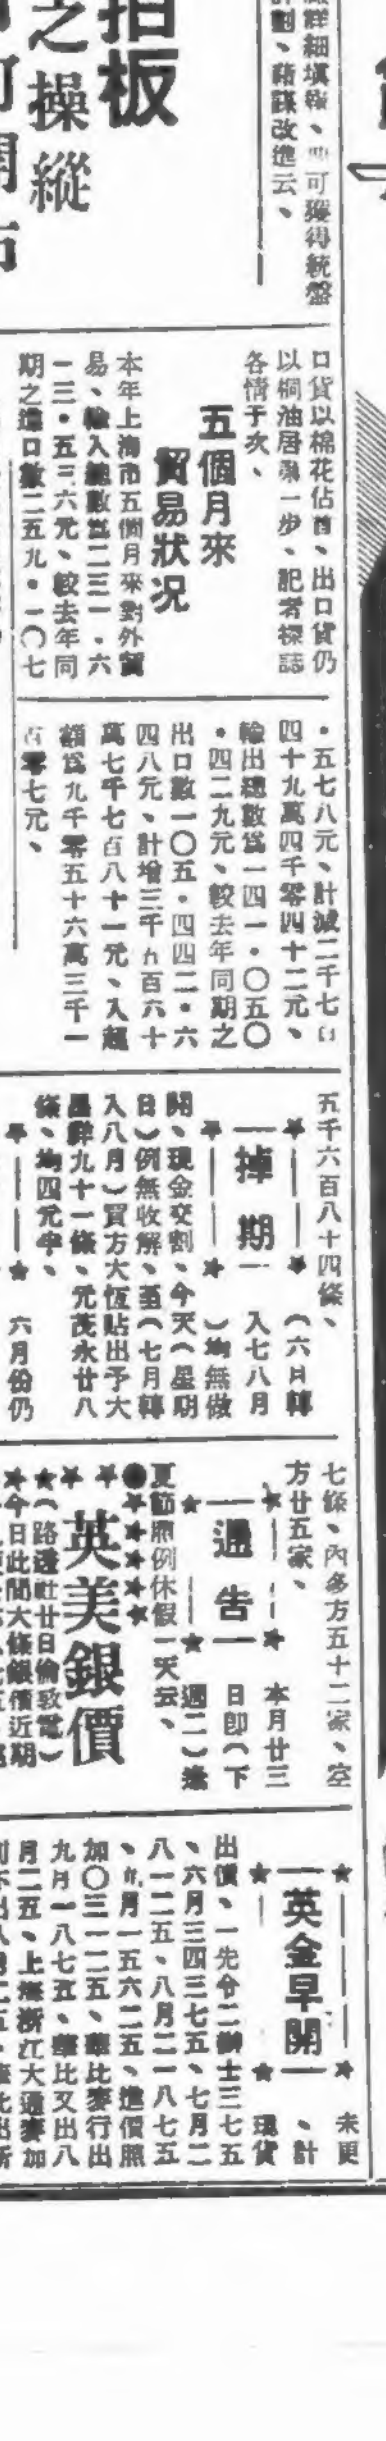 拍板
之操縱
詳細填報、並可獲得統盤
計劃、藉謀改進云、
口貨以棉花佔首、出口貨仍
以桐油居第一步、記者探誌
各情于次、
五個月來
貿易狀況
本年上海市五個月來對外貿
易、輸入總數為二三一・六
一三・五三六元、較去年同
期之進口數二五九・一〇七
・五七八元、計減二千七百
四十九萬四千零四十二元、
輸出總數為一四一・〇五〇
・四二九元、較去年同期之
出口數一〇五・四四二・六
四八元、計增三千五百六十
萬七千七百八十一元、入超
額為九千零五十六萬三千一
百零七元、
五千六百八十四條、
掉期
（六月轉
入七八月
）均無做
開、現金交割、今天（星期
日）例無收解、至（七月轉
入八月）買方大恆貼出予大
昌祥九十一條、元茂永廿八
條、均四元半、
六月份仍
七條、內多方五十二家、空
方廿五家、
通告
本月廿三
日卽（下
週二）為
夏節照例休假一天云、
英美銀價
（路透社廿日倫敦電）
今日此間大條銀價近期
英金早開
未更
、計
現貨
出價、一先令二辦士三七五
、六月三四三七五、七月二
八一二五、八月二一八七五
、九月一五六二五、進價照
加〇三一二五、華比麥行出
九月一八七五、華比又出八
月二五、上海浙江大通麥加